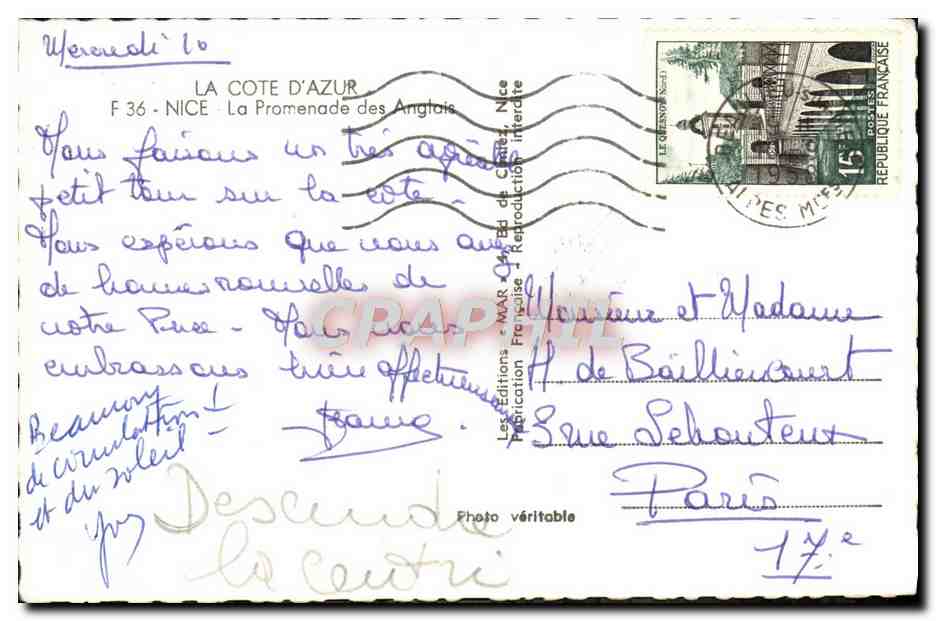 Mercredi 10
LA COTE D'AZUR
F 36 - NICE - La Promenade des Anglais
Nous faisons un très agréable
petit tour sur la côte -
Nous espérons que vous avez
de bonnes nouvelles de
notre Puce - Nous vous
embrassons bien affectueusement
Beaucoup
de circulation !
et du soleil -
Yves
Descendre
la
Photo véritable
Les Editions "MAR" Bd de Cimiez, Nice
Fabrication Française - Reproduction interdite
LE QUESNOY (Nord)
15F
POSTES
REPUBLIQUE FRANÇAISE
ALPES MMES
Monsieur et Madame
H de Bailliencourt
3 rue Lehouteux
Paris
17.e
CRAPHIL